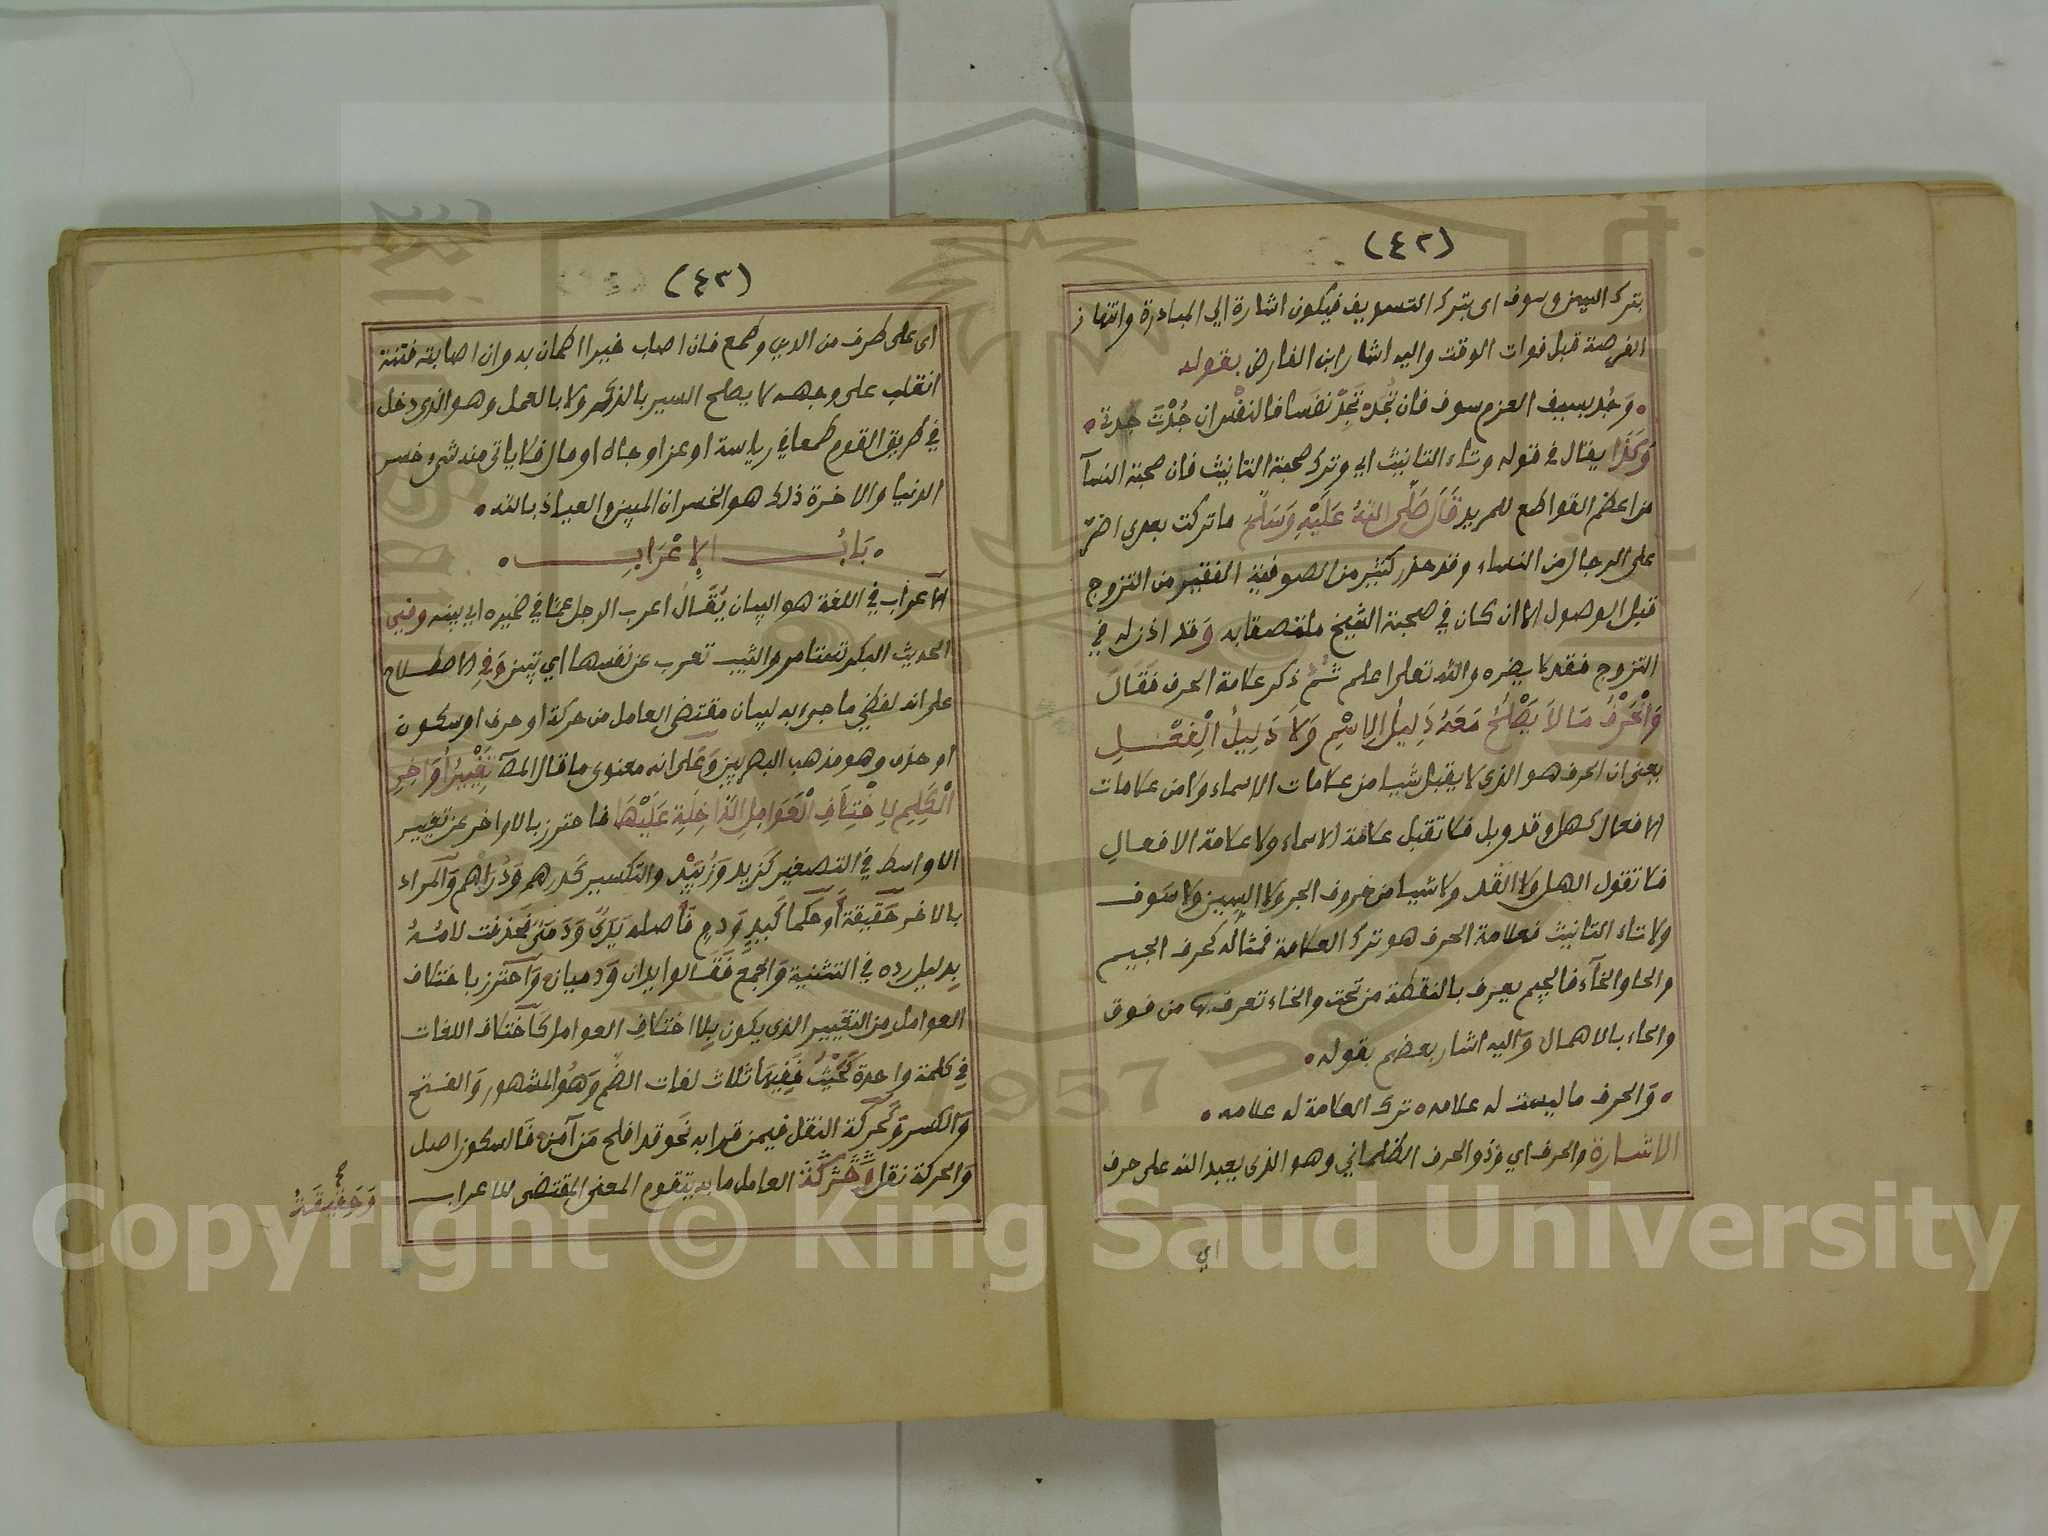 (٤٢)
بترك السين وسوف اى بترك التسويف فيكون اشارة الي المبادرة وانتهاز
الفرصة قبل فوات الوقت واليه اشار ابن الفارض بقوله
• وَجُد بسيف العزم سوف فان تَجُد تَجِدْ نفَسا فالنفْس ان جُدْتَ جدت •
وَكَذا يقال في قوله وتاء التانيث اي وترك صحبة التانيث فان صحبة النسآ
من اعظم القواطع للمريد قَالَ صَلَّى اللهُ عَلَيْهِ وَسَلَّمَ ما تركت بعدى اضر
على الرجال من النساء وقد حذر كثير من الصوفية الفقير من التزوج
قبل الوصول الا ان كان في صحبة الشيخ ملتصقا به وَقد اذن له في
التزوج فقد لا يضره والله تعلى اعلم ثُمَّ ذكر علامة الحرف فَقَالَ
وَالْحَرْفُ مَا لاَ يَصْلُحُ مَعَهُ دَلِيلُ الِاسْمِ وَلاَ دَلِيلُ الْفِعْلِ
يعنى ان الحرف هو الذى لا يقبل شيا من علامات الاسماء ولا من علامات
الافعال كهل وقد وبل فلا تقبل علامة الاسماء ولا علامة الافعال
فلا تقول الهل ولا القد ولا شيا من حروف الجر ولا السين ولا سوف
ولا تاء التانيث فعلامة الحرف هو ترك العلامة فمثاله كحرف الجيم
والحا والخآء فالجيم يعرف بالنقطة من تحت والخاء تعرف بها من فوق
والحاء بالاهمال وآليه اشار بعضهم بقوله •
• وَالحرف ما ليست له علامه • ترك العلامة له علامه •
الاشارة والحرف اي وذو الحرف الظلماني وهو الذى يعبد الله على حرف
اي
(٤٣)
اى على طرف من الدين وطمع فان اصاب خيرا اطمان به وان اصابته فتنة
انقلب على وجهه لا يصلح السير بالذكر ولا بالعمل وهو الذى دخل
في طريق القوم طمعا في رياسة او عز او جاه او مال فلا ياتى منه شيء خسر
الدنيا والاخرة ذلك هو الخسران المبين والعياذ بالله •
• بَابُ الإِعْرَابِ •
الآعراب في اللغة هو البيان يُقَال اعرب الرجل عما في ضميره اي بينه وفي
الحديث البكر تستامر والثيب تعرب عن نفسها اي تبين وَفي الاصطلاح
على انه لفظي ما جيء به لبيان مقتضى العامل من حركة او حرف او سكون
او حذف وهو مذهب البصريين وَعَلى انه معنوى ما قال المص تَغْيِيرُ أَوَاخِرِ
الْكَلِمِ لِاخْتِلَافِ الْعَوَامِلِ الدَّاخِلَةِ عَلَيْهَا فاحترز بالاواخر عن تغيير
الاواسط في التصغير كزيد وَزُيَيْد والتكسير كدرهم وَدَرَاهم وَالمراد
بالاخر حَقيقة أو حُكما كَيَدٍ وَدمٍ فَأصله يَدَيٌ وَدَمَيٌ فحذفت لامُهُ
بدليل رده في التثنية وَالجمع فَقَالوا يديان وَدميان وَآحترز باختلاف
العوامل من التغيير الذى يكون بلا اختلاف العوامل كَآختلاف اللغات
في كلمة واحدة كَحَيْثُ فَفِيهَا ثلاث لغات الضم وَهُو المشهور وَالفتح
وَالكسر وَكَحركة النقل فيمن قرا به نَحو قد افلح مَن آمن فَالسكون اصل
وَالحركة نقل وَحَرَكَة العامل ما به يتقوم المعنى المقتضى للاعراب
وَحَقِيقَةُ
Copyright © King Saud University
1957